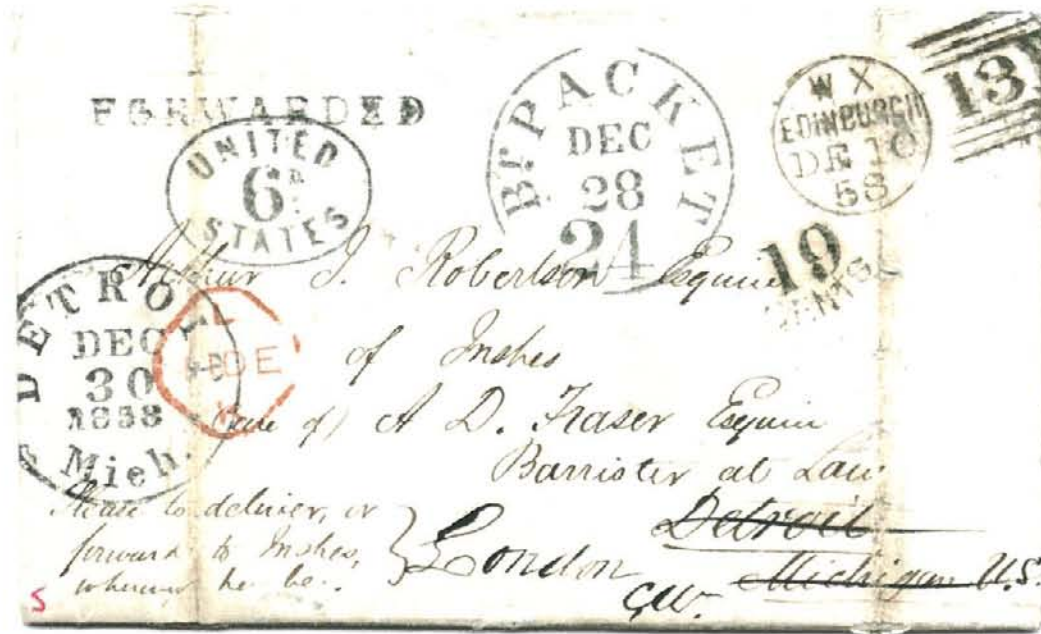 FORWARDED
UNITED
6D
STATES
Br. PACKET
DEC
28
21
W X
EDINBURGH
DE 10
58
131
19
CENTS
DETROIT
DEC
30
1858
Mich.
L
DE
Arthur J. Robertson Esquire
of Inshes
Care of) A D. Fraser Esquire
Barrister at Law
Detroit
Michigan U.S.
London
CW.
Please to deliver, or
forward to Inshes,
wherever he be.
S